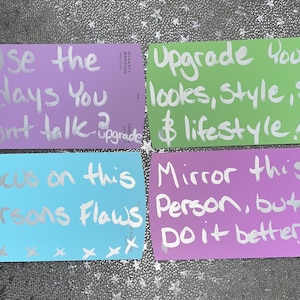 Use the
days You
ont talk-?
upgrade
Upgrade You
looks, style,
$ lifestyle
ocus on this
ersons Flaws
x x x x x
Mirror this
Person, but
DO it better